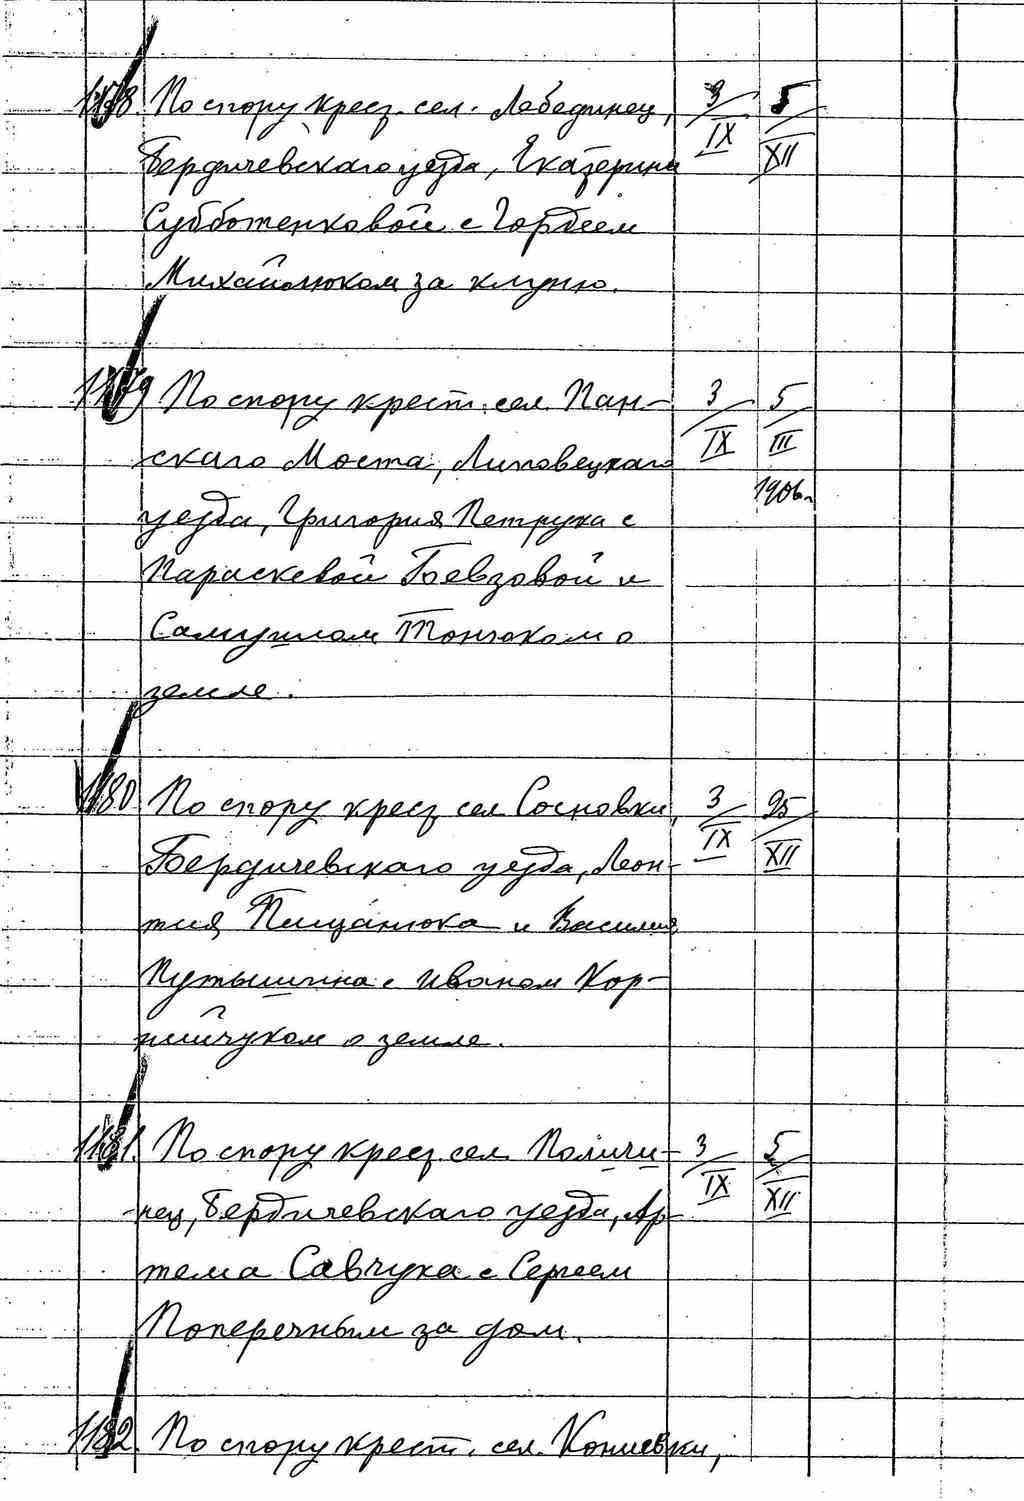 1178. По спору крест. сел. Лебединец, 3/IX 5/XII
Бердичевскаго уезда, Екатерины
Субботенковой с Гордеем
Михайлюком за клуню.
1179 По спору крест. сел. Пан- 3/IX 5/III 1906 г.
скаго Моста, Липовецкаго
уезда, Григория Петрука с
Параскевой Бевзовой и
Самуилом Тончаком о
земле.
1180 По спору крест. сел. Сосновки, 3/IX 25/XII
Бердичевскаго уезда, Леон-
тия Пищанюка и Василия
Путышина с Иваном Кор-
пийчуком о земле.
1181. По спору крест. сел. Поличи- 3/IX 5/XII
нец, Бердичевскаго уезда, Ар-
тема Савчука с Сергеем
Поперечным за дом.
1182. По спору крест. сел. Кониевки,